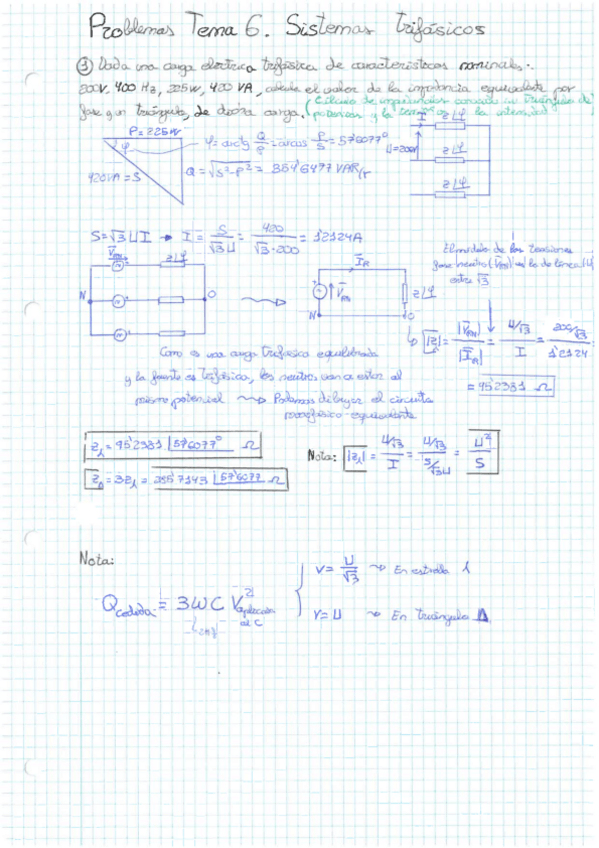 Problemas Tema 6. Sistemas trifásicos
① Dada una carga eléctrica trifásica de características nominales:
200V, 400 Hz, 225W, 420 VA, calcula el valor de la impedancia equivalente por
fase y en triángulo, de dicha carga. (Cálculo de impedancias conocido un triángulo de
potencias y la tensión o la intensidad)
P=225W
φ
420VA=S
φ=arctg Q/P = arcos P/S = 57'6077°
Q=√S²-P² = 354'6477 VAR
I
U=200V
z∠φ
z∠φ
z∠φ
S=√3 U I → I = S/√3U = 420/√3·200 = 1'2124A
El módulo de las tensiones
fase neutro (V̄RN) es la de línea (U)
entre √3
V̄RN
z∠φ
N
O
ĪR
V̄RN
z∠φ
N
O
|z̄| = |V̄RN|/|ĪR| = U/√3/I = 200/√3/1'2124
= 95'2381 Ω
Como es una carga trifásica equilibrada
y la fuente es trifásica, los neutros van a estar al
mismo potencial ⇝ Podemos dibujar el circuito
monofásico-equivalente
zλ = 95'2381 ∠57'6077° Ω
Nota: |zλ| = U/√3/I = U/√3/S/√3U = U²/S
zΔ = 3zλ = 285'7143 ∠57'6077 Ω
Nota:
Qcedida = 3ωC V² aplicada al C
2πf
V = U/√3 ⇝ En estrella λ
V = U ⇝ En triángulo Δ